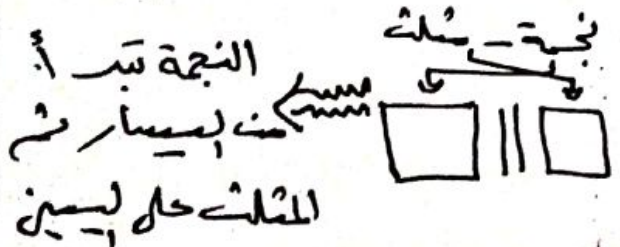 نجمة - مثلث
النجمة تبدأ:
من اليسار ثم
المثلث على اليمين